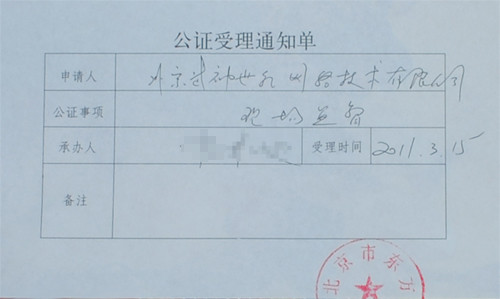 公证受理通知单
申请人 北京武神世纪网络技术有限公司
公证事项 现场监督
承办人 受理时间 2011.3.15
备注
北京市东方